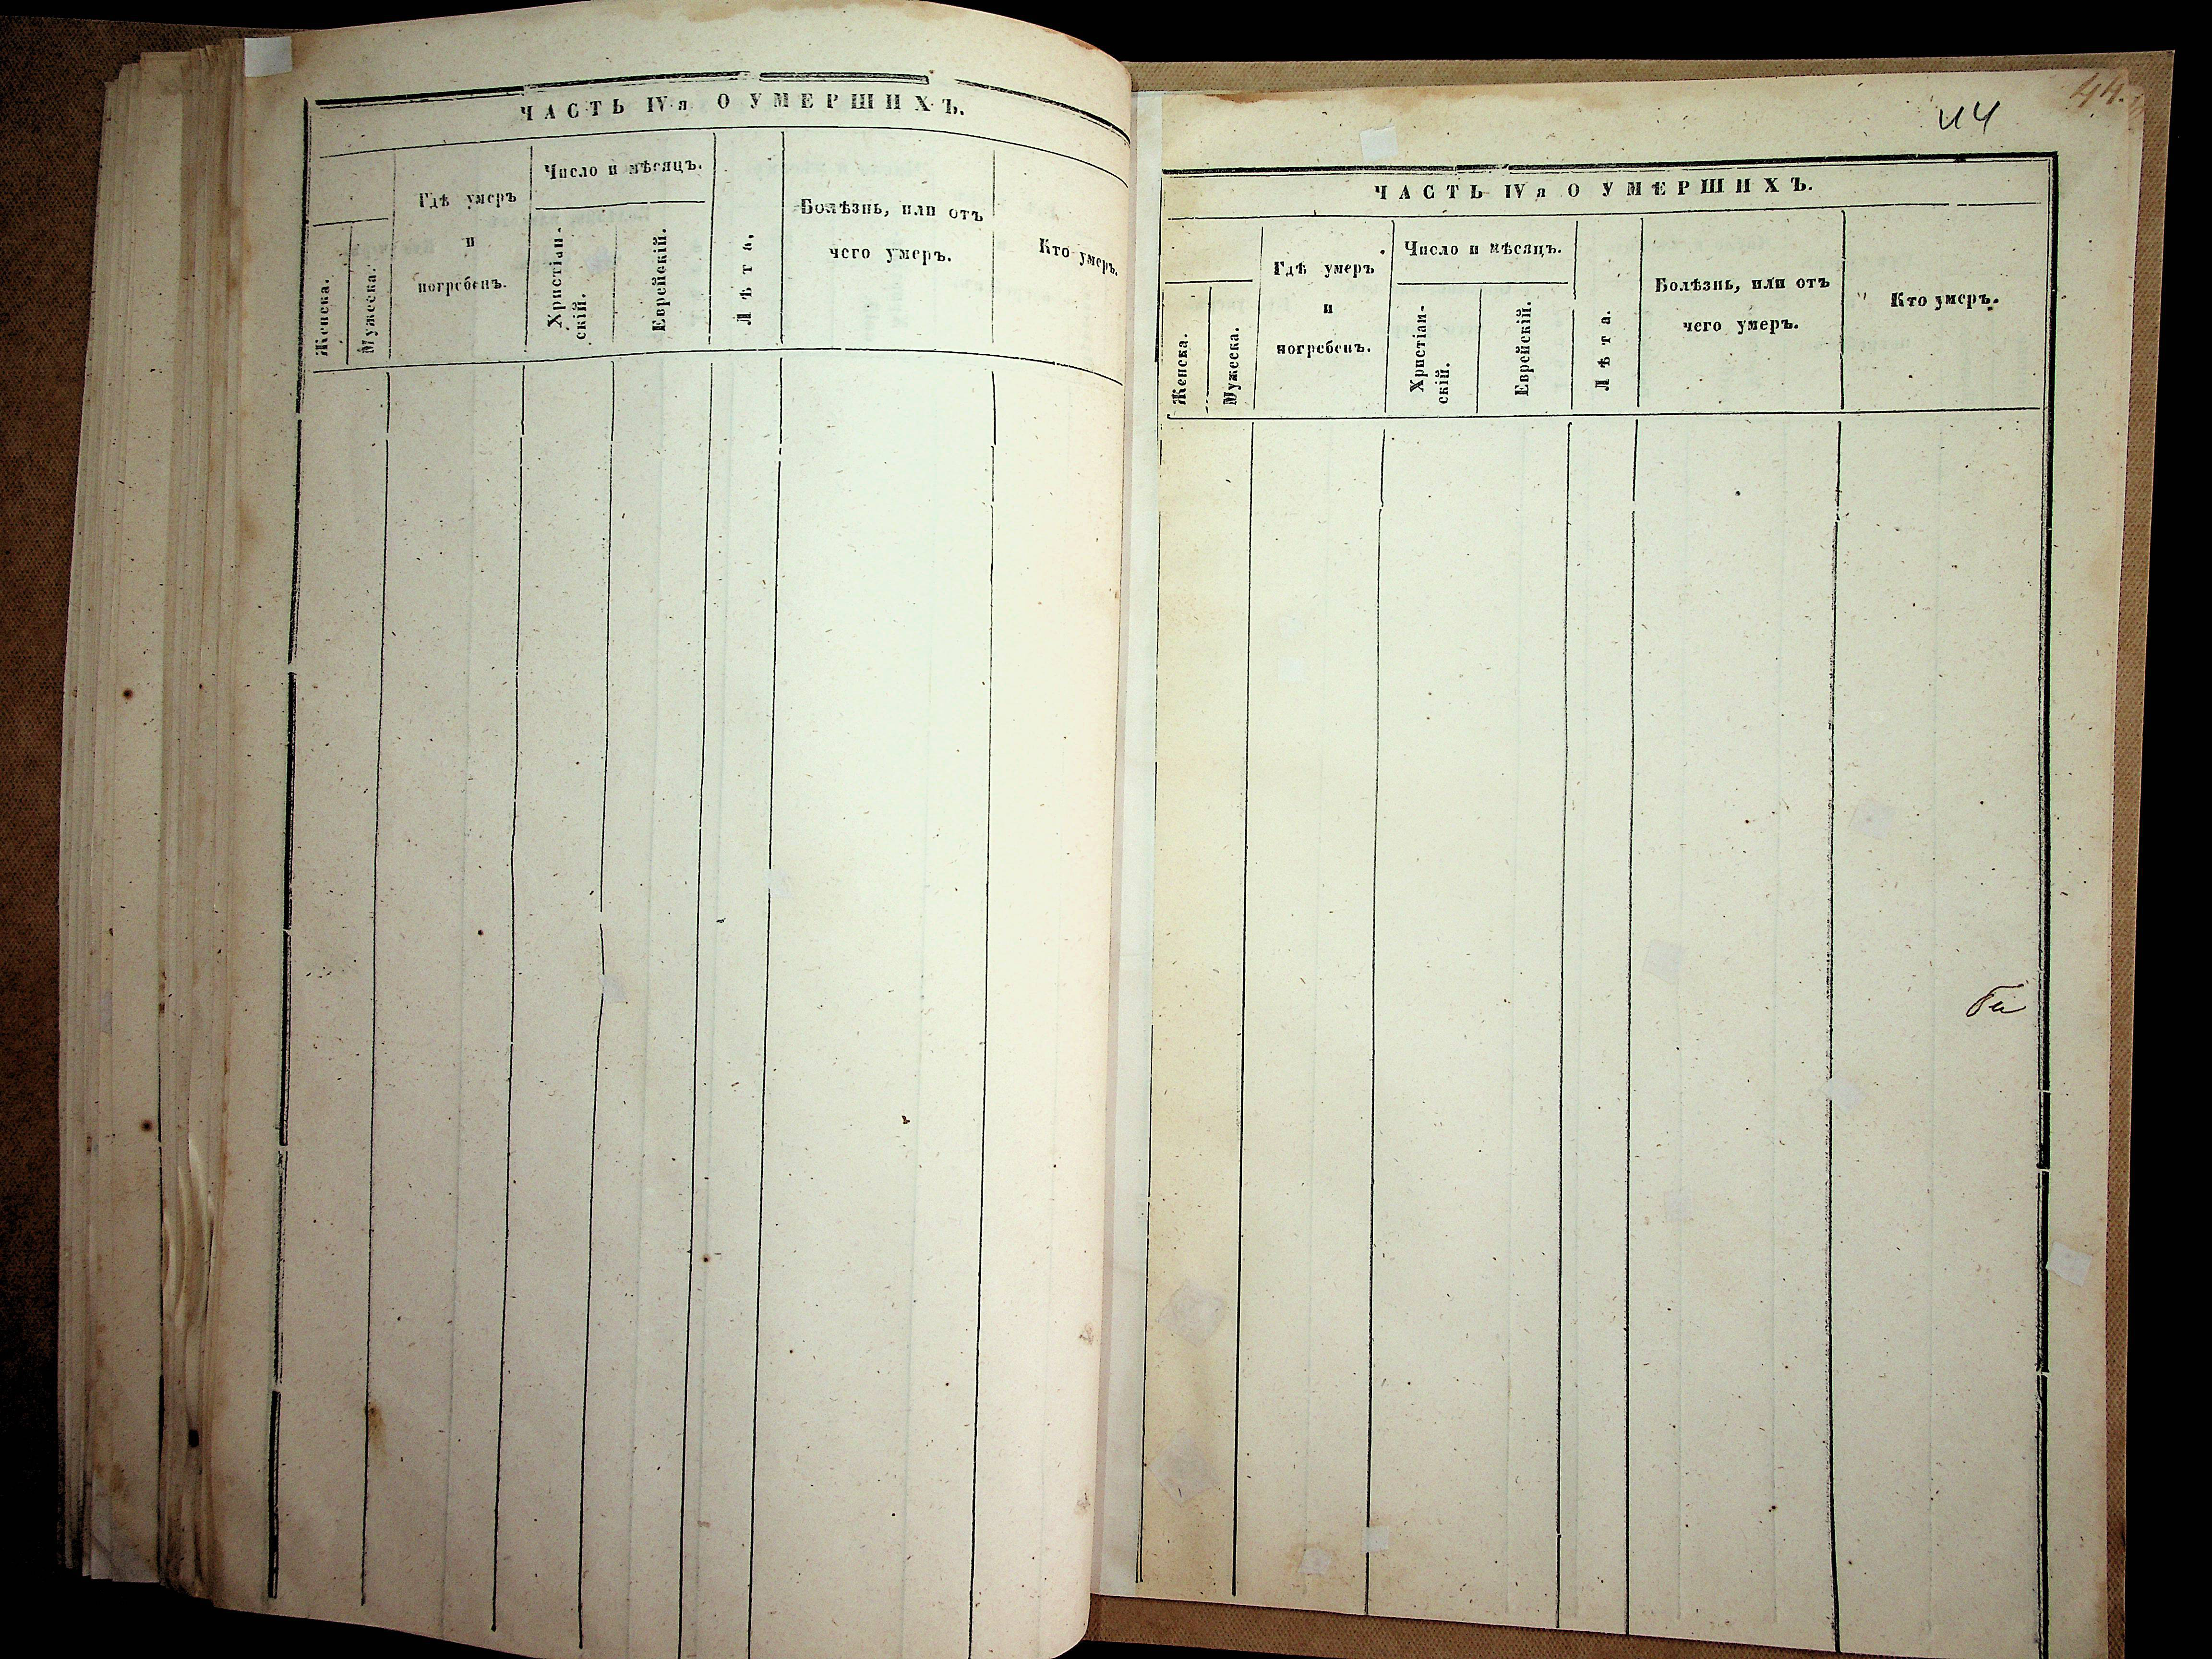 ЧАСТЬ IVя О УМЕРШИХЪ.
Женска.
Мужеска.
Гдѣ умеръ
и
погребенъ.
Число и мѣсяцъ.
Христіан-
скій.
Еврейскій.
Лѣта,
Болѣзнь, или отъ
чего умеръ.
Кто умеръ.
44.
44
ЧАСТЬ IVя О УМЕРШИХЪ.
Женска.
Мужеска.
Гдѣ умеръ
и
погребенъ.
Число и мѣсяцъ.
Христіан-
скій.
Еврейскій.
Лѣта.
Болѣзнь, или отъ
чего умеръ.
Кто умеръ.